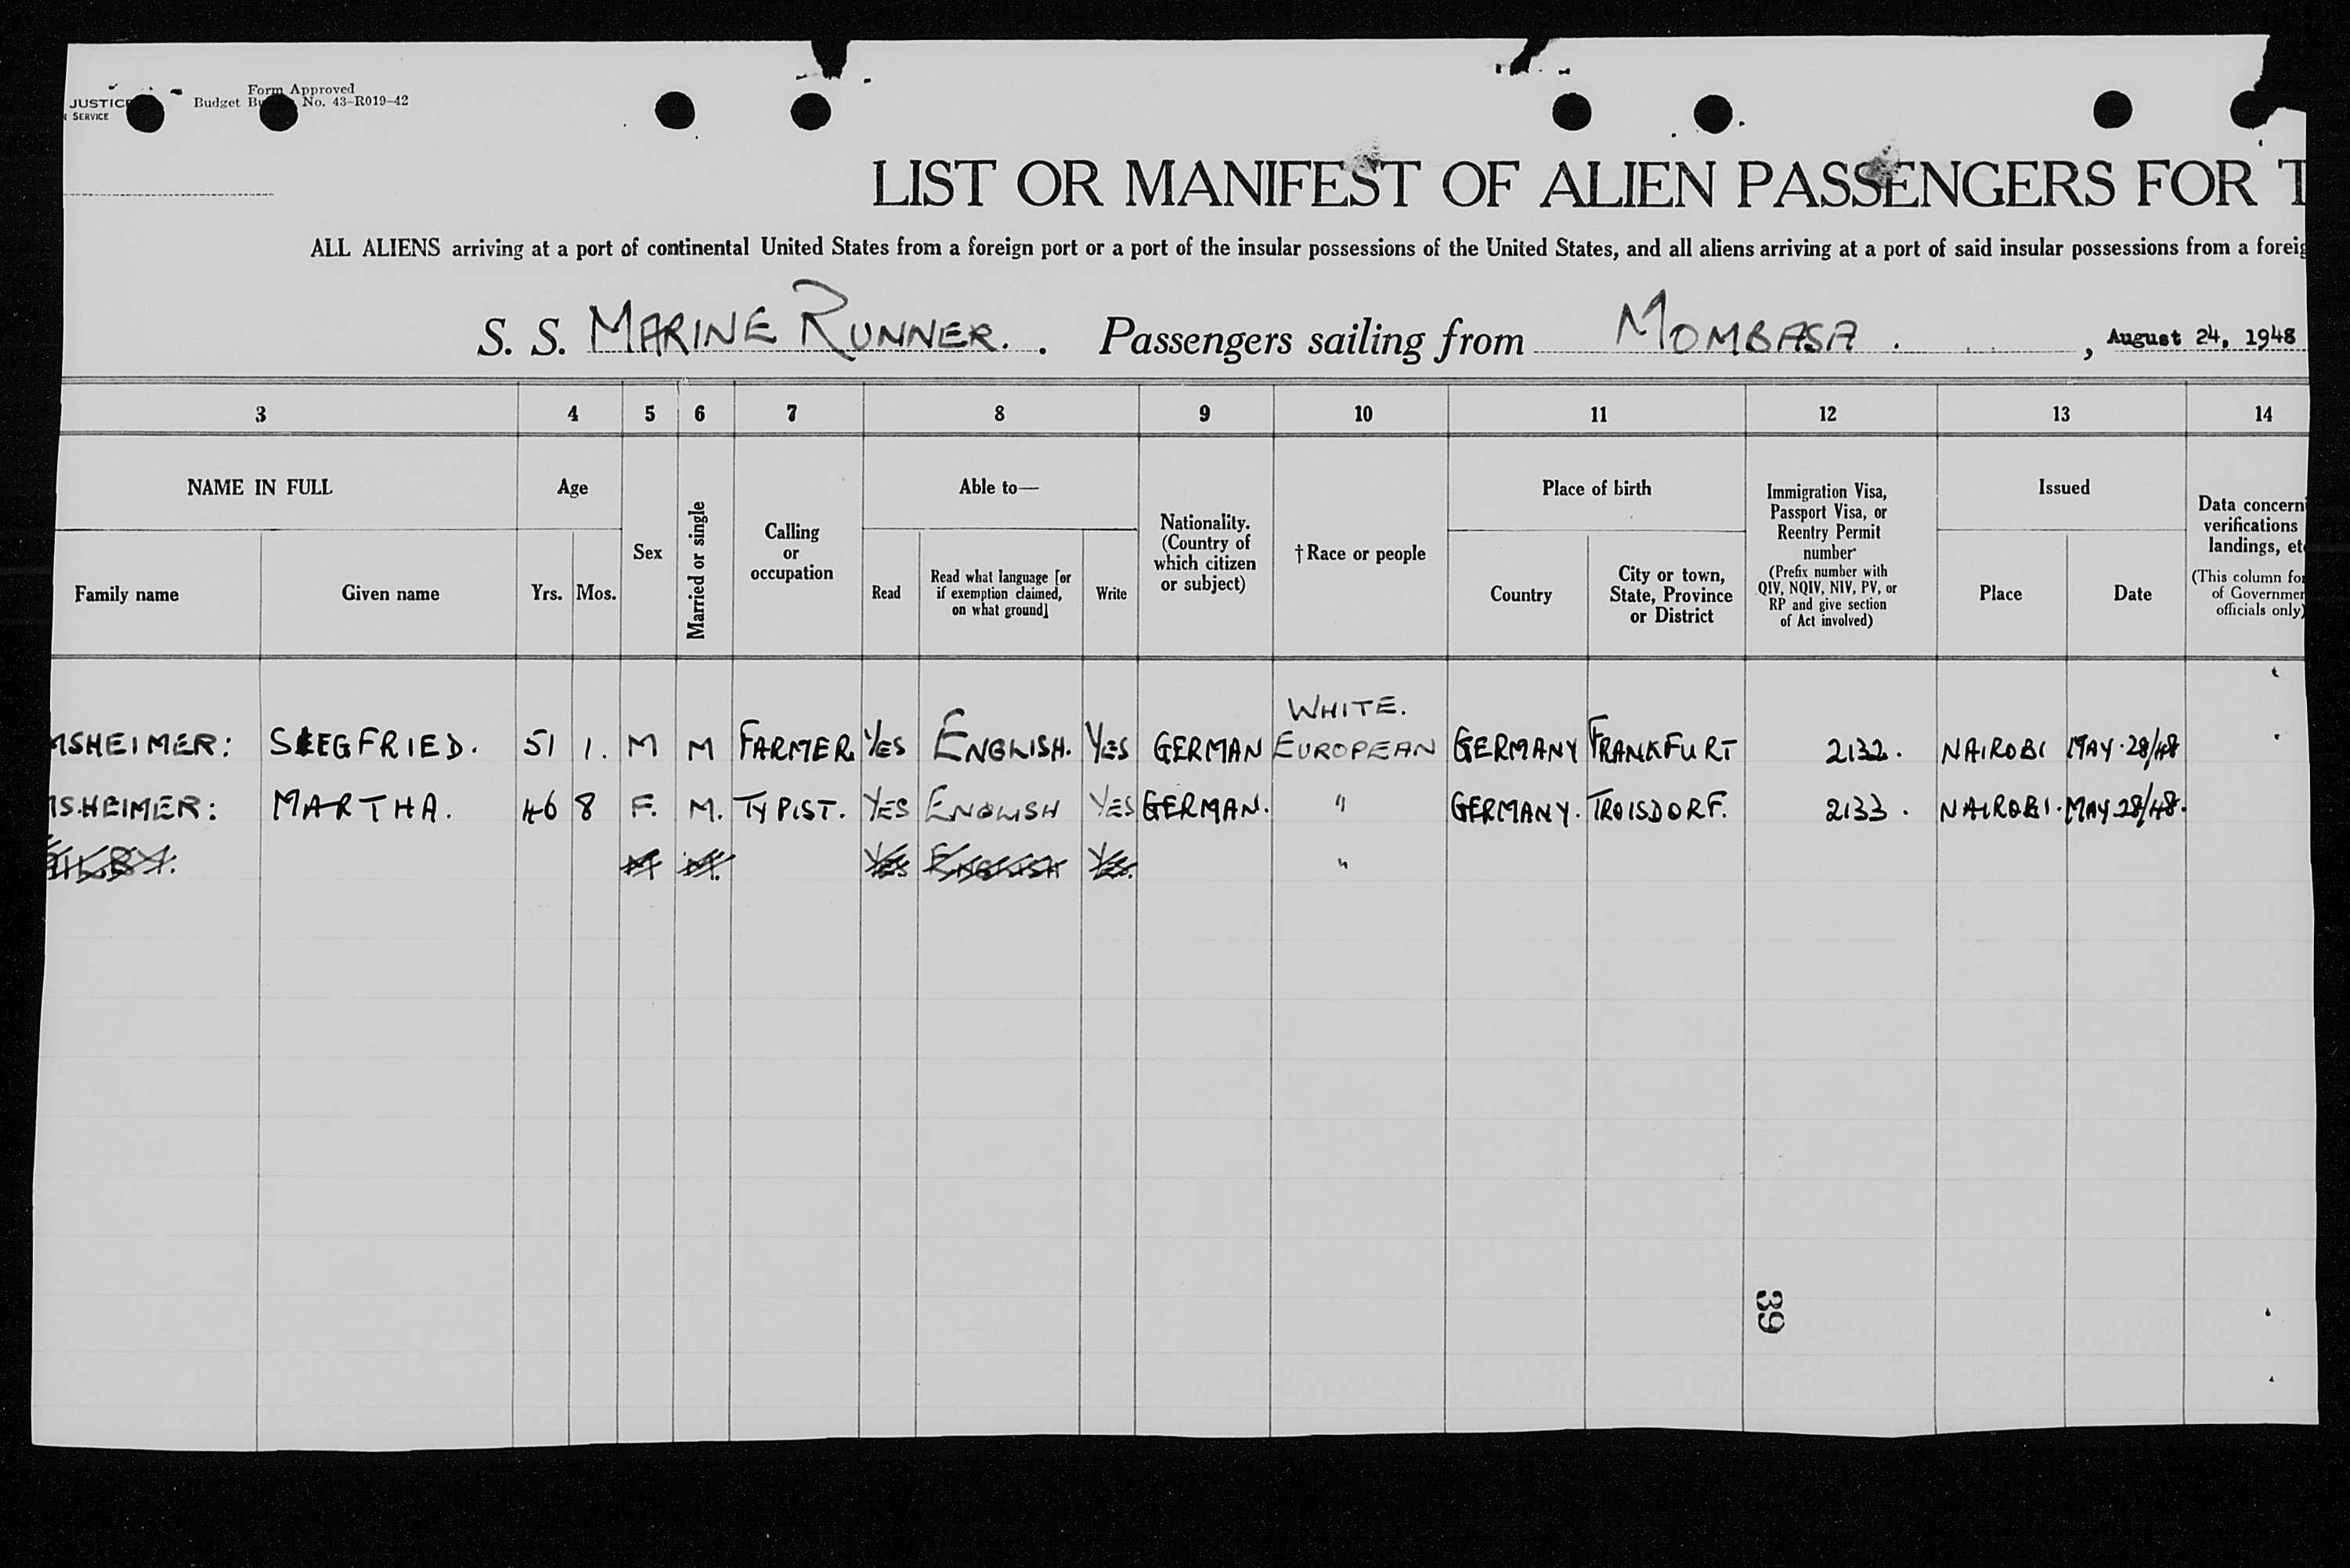 JUSTICE
SERVICE
Form Approved
Budget No. 43-R019-42
LIST OR MANIFEST OF ALIEN PASSENGERS FOR T
ALL ALIENS arriving at a port of continental United States from a foreign port or a port of the insular possessions of the United States, and all aliens arriving at a port of said insular possessions from a foreig
S. S. MARINE RUNNER. . Passengers sailing from MOMBASA . , August 24, 1948
3 4 5 6 7 8 9 10 11 12 13 14
NAME IN FULL
Family name
Given name
Age
Yrs. Mos.
Sex
Married or single
Calling
or
occupation
Able to—
Read
Read what language [or
if exemption claimed,
on what ground]
Write
Nationality.
(Country of
which citizen
or subject)
†Race or people
Place of birth
Country
City or town,
State, Province
or District
Immigration Visa,
Passport Visa, or
Reentry Permit
number
(Prefix number with
QIV, NQIV, NIV, PV, or
RP and give section
of Act involved)
Issued
Place
Date
Data concern
verifications
landings, et
(This column for
of Governmen
officials only)
WHITE.
MSHEIMER: SIEGFRIED. 51 1. M M FARMER YES ENGLISH. YES GERMAN EUROPEAN GERMANY FRANKFURT 2132. NAIROBI MAY.28/48
MSHEIMER: MARTHA. 46 8 F. M. TYPIST. YES ENGLISH YES GERMAN. " GERMANY. TROISDORF. 2133. NAIROBI. MAY.28/48.
M M. YES ENGLISH YES. "
39